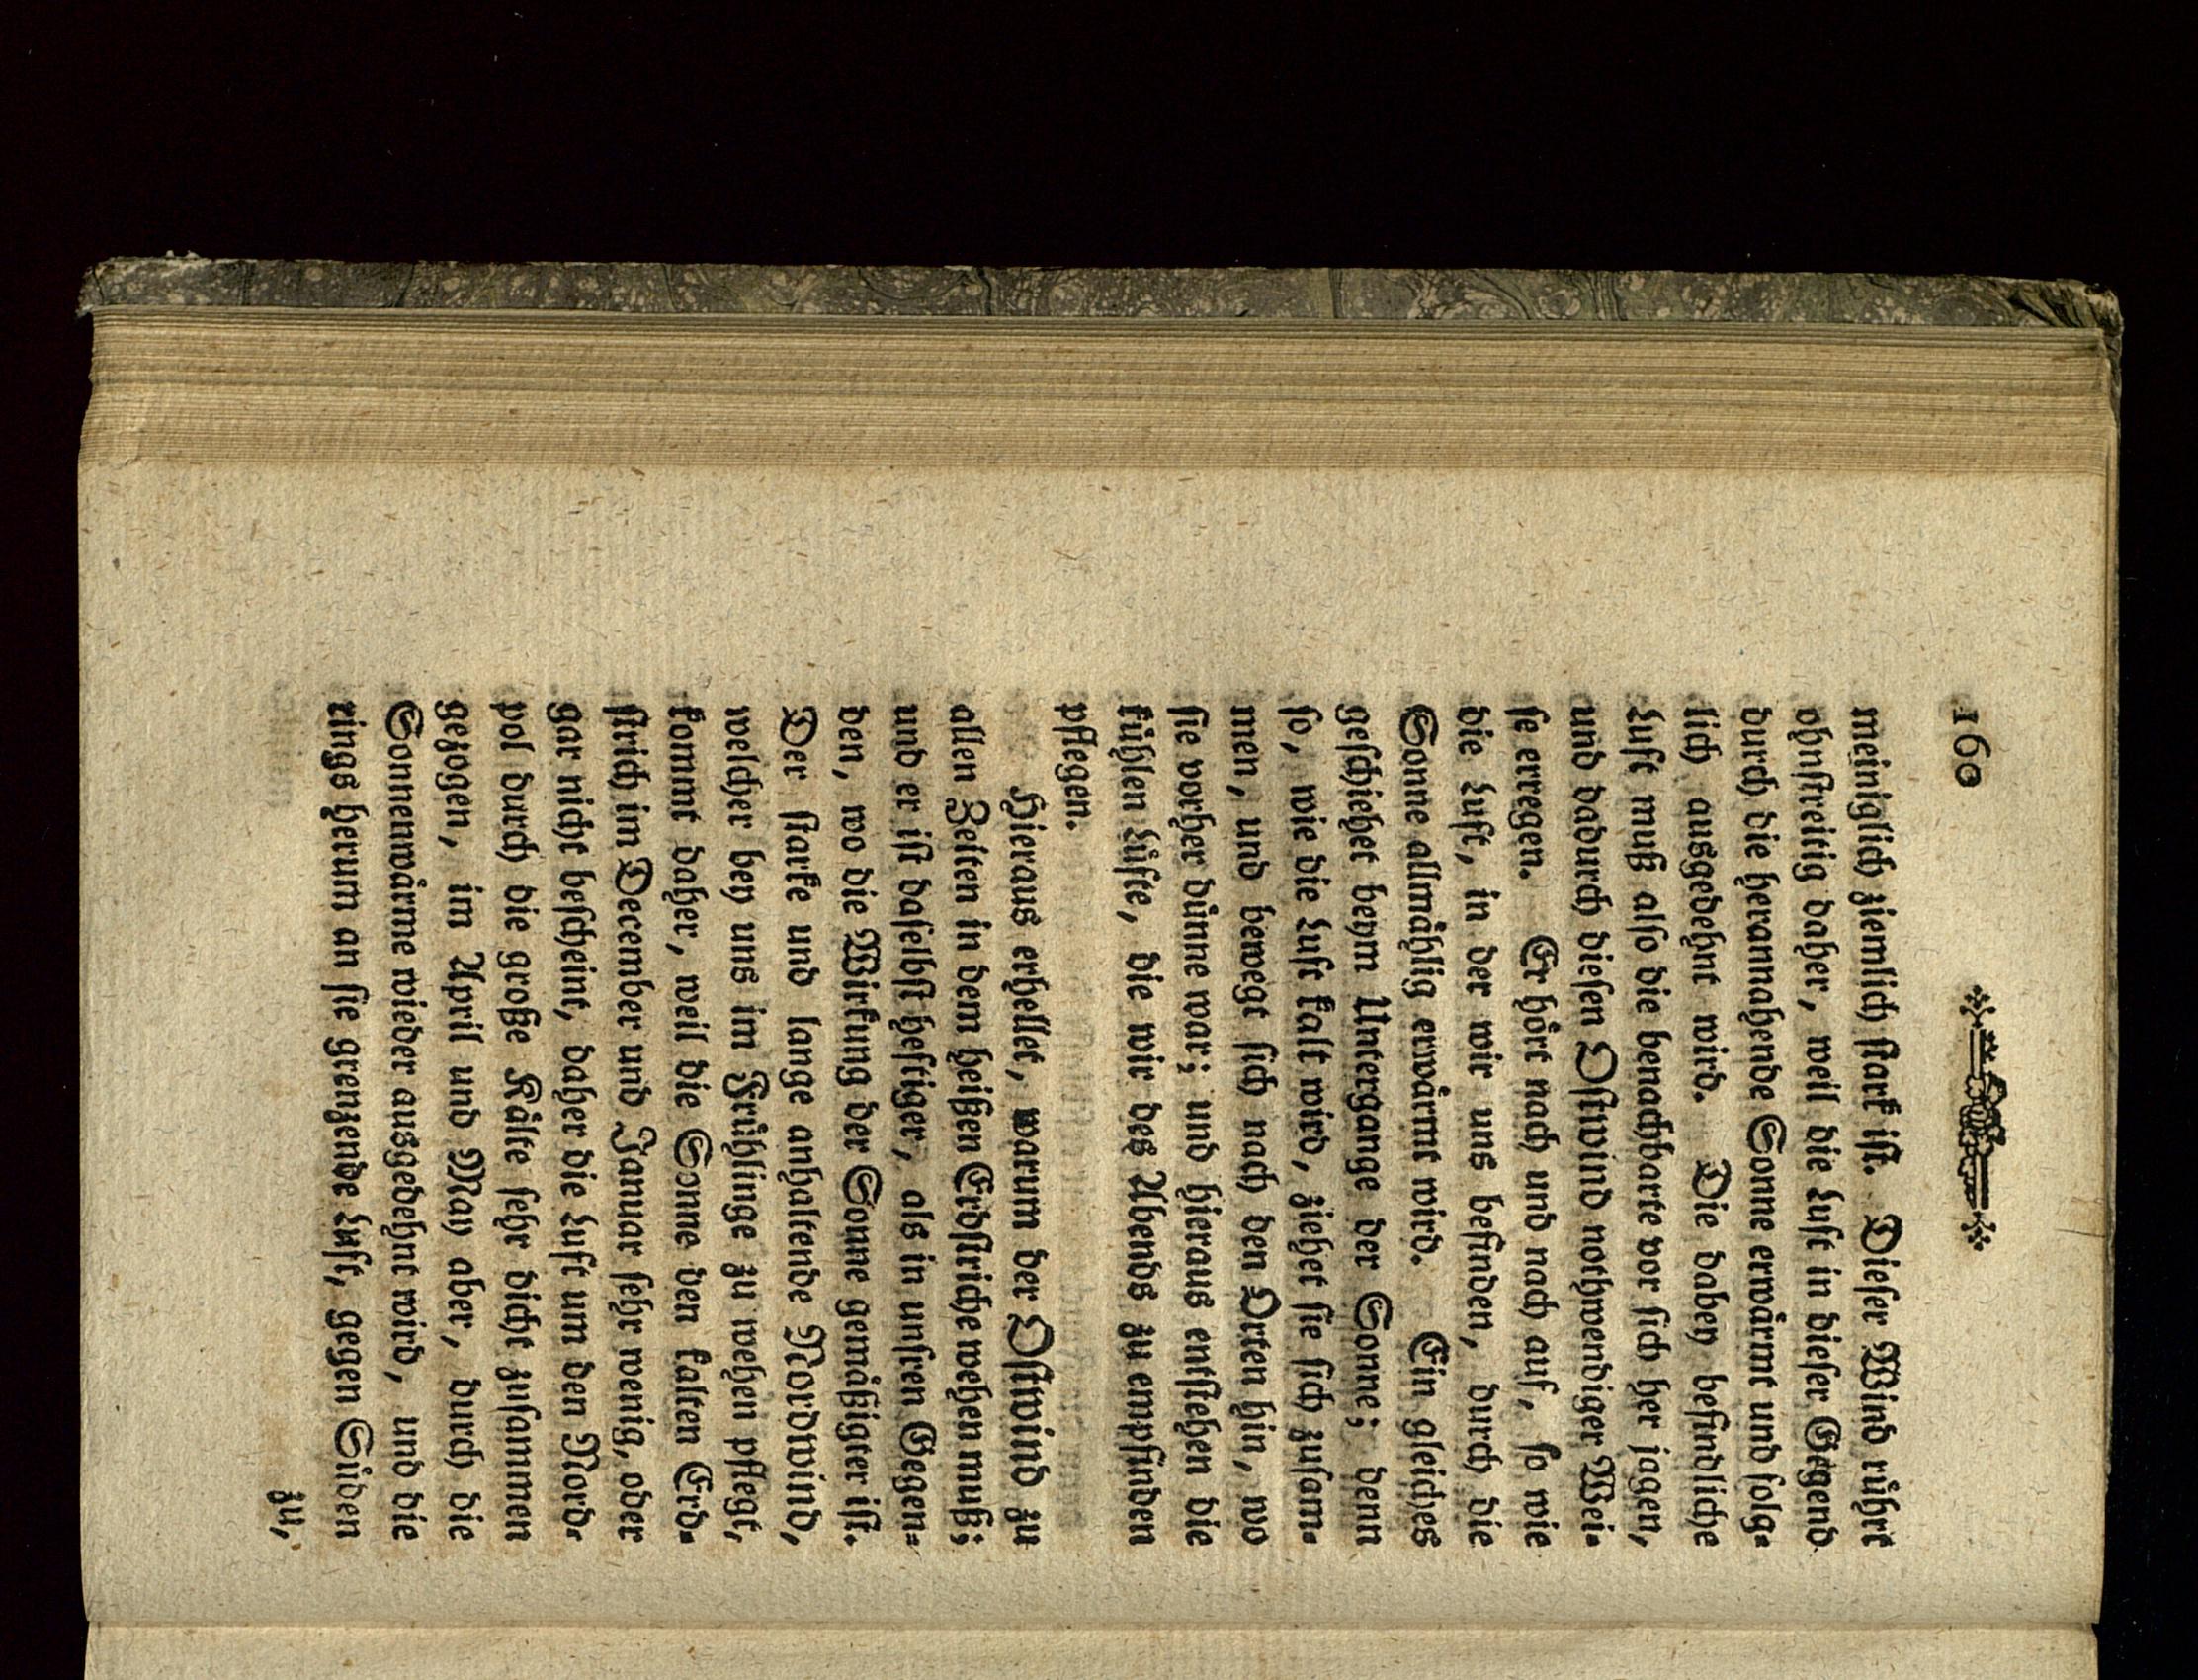 160
meiniglich ziemlich ſtark iſt. Dieſer Wind rührt
ohnſtreitig daher, weil die Luft in dieſer Gegend
durch die herannahende Sonne erwärmt und folg-
lich ausgedehnt wird. Die dabey befindliche
Luft muß alſo die benachbarte vor ſich her jagen,
und dadurch dieſen Oſtwind nothwendiger Wei-
ſe erregen. Er hört nach und nach auf, ſo wie
die Luft, in der wir uns befinden, durch die
Sonne allmählig erwärmt wird. Ein gleiches
geſchiehet beym Untergange der Sonne; denn
ſo, wie die Luft kalt wird, ziehet ſie ſich zuſam-
men, und bewegt ſich nach den Orten hin, wo
ſie vorher dünne war; und hieraus entſtehen die
kühlen Lüfte, die wir des Abends zu empfinden
pflegen.
Hieraus erhellet, warum der Oſtwind zu
allen Zeiten in dem heißen Erdſtriche wehen muß;
und er iſt daſelbſt heftiger, als in unſren Gegen-
den, wo die Wirkung der Sonne gemäßigter iſt.
Der ſtarke und lange anhaltende Nordwind,
welcher bey uns im Frühlinge zu wehen pflegt,
kommt daher, weil die Sonne den kalten Erd-
ſtrich im December und Januar ſehr wenig, oder
gar nicht beſcheint, daher die Luft um den Nord-
pol durch die große Kälte ſehr dicht zuſammen
gezogen, im April und May aber, durch die
Sonnenwärme wieder ausgedehnt wird, und die
rings herum an ſie grenzende Luft, gegen Süden
zu,